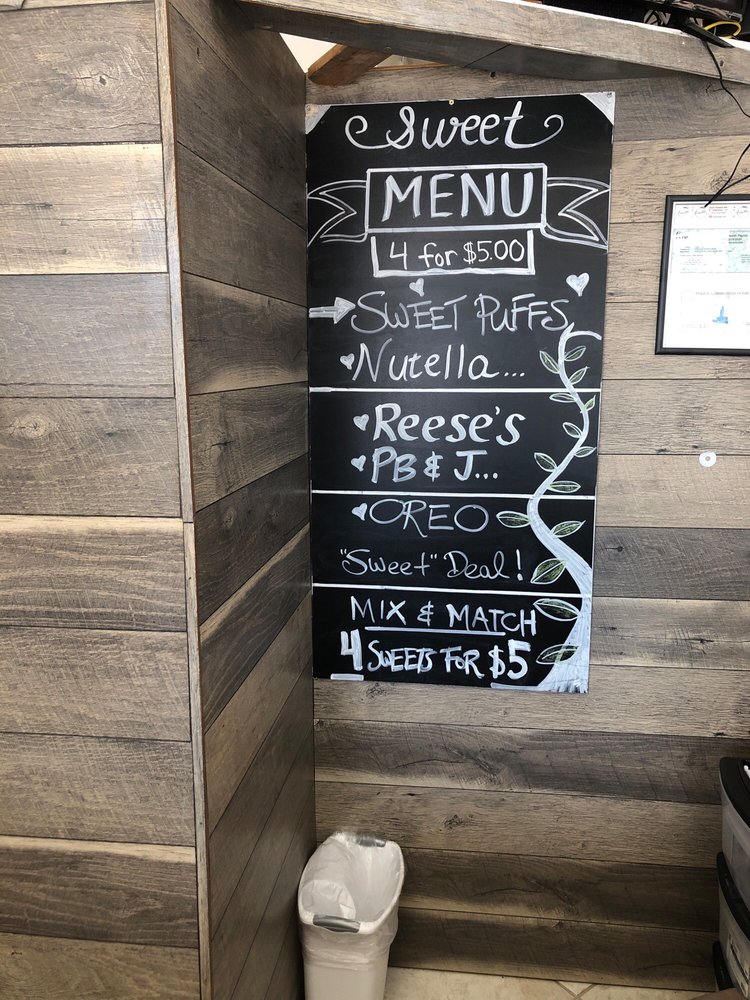 Sweet
MENU
4 for $5.00
SWEET PUFFS
Nutella...
Reese's
PB & J...
OREO
"Sweet" Deal!
MIX & MATCH
4 SWEETS FOR $5